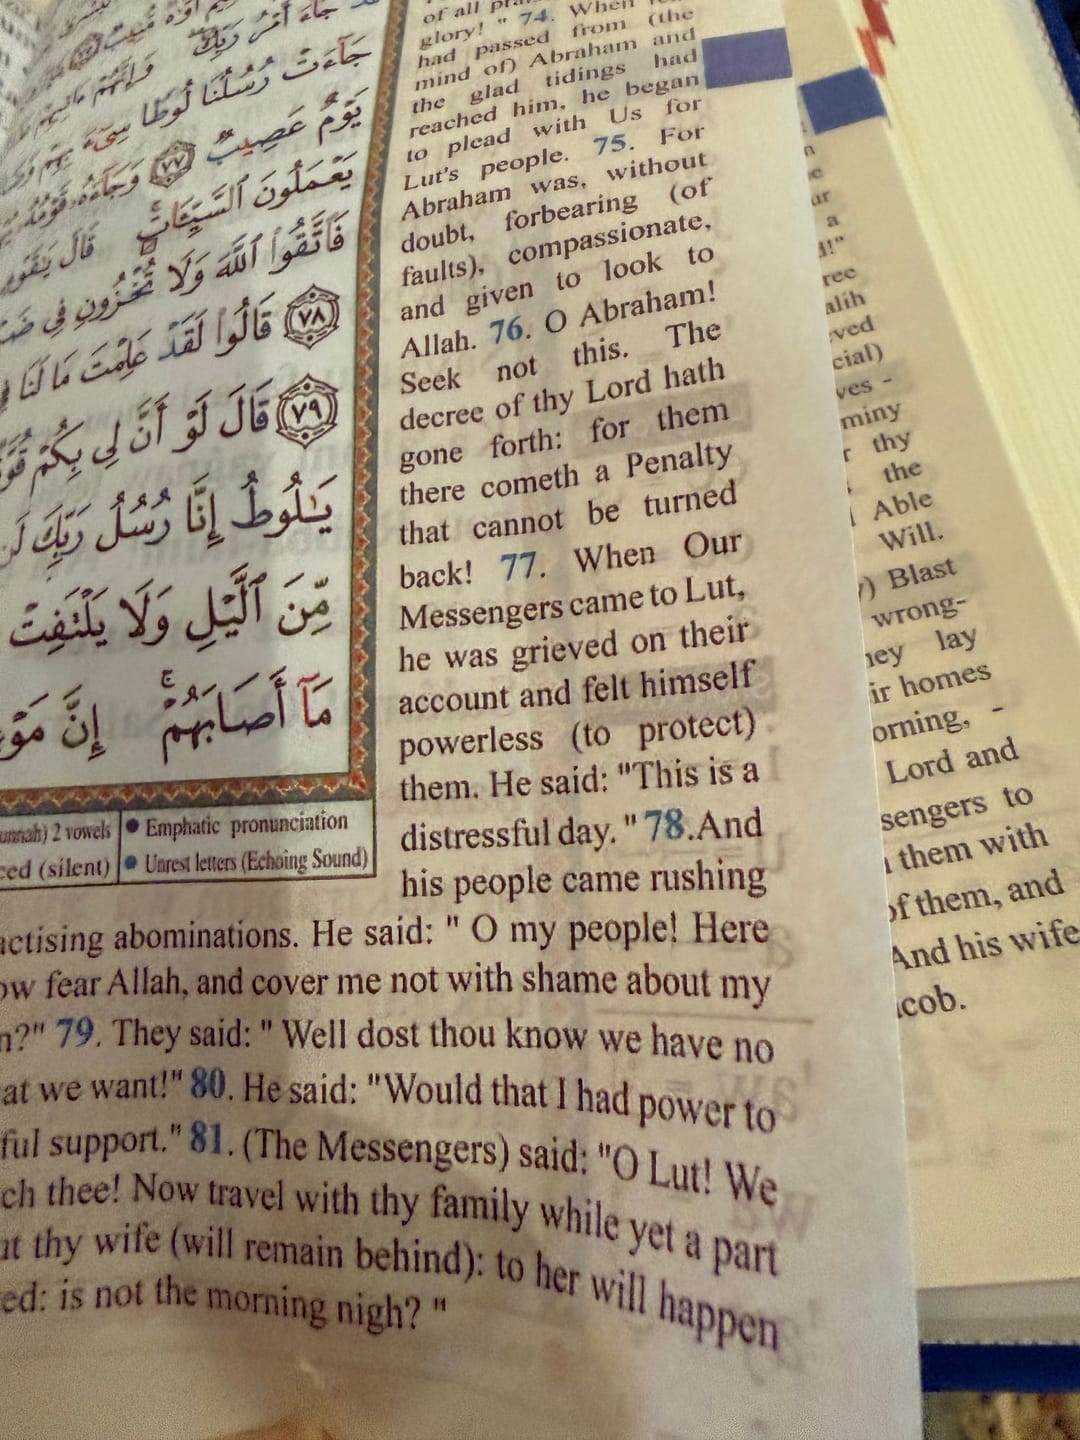 جَآءَ أَمْرُ رَبِّكَ
جَآءَتْ رُسُلُنَا لُوطًا سِىٓءَ بِهِمْ
يَوْمٌ عَصِيبٌ ٧٧ وَجَآءَهُۥ قَوْمُهُۥ
يَعْمَلُونَ ٱلسَّيِّـَٔاتِ ۚ قَالَ يَـٰقَوْمِ
فَٱتَّقُوا۟ ٱللَّهَ وَلَا تُخْزُونِ فِى
٧٨ قَالُوا۟ لَقَدْ عَلِمْتَ مَا لَنَا
٧٩ قَالَ لَوْ أَنَّ لِى بِكُمْ
يَـٰلُوطُ إِنَّا رُسُلُ رَبِّكَ
مِّنَ ٱلَّيْلِ وَلَا يَلْتَفِتْ
مَآ أَصَابَهُمْ ۚ إِنَّ
unnah) 2 vowels ● Emphatic pronunciation
ced (silent) ● Unrest letters (Echoing Sound)
of all
glory! " 74. When
had passed from (the
mind of) Abraham and
the glad tidings had
reached him, he began
to plead with Us for
Lut's people. 75. For
Abraham was, without
doubt, forbearing (of
faults), compassionate,
and given to look to
Allah. 76. O Abraham!
Seek not this. The
decree of thy Lord hath
gone forth: for them
there cometh a Penalty
that cannot be turned
back! 77. When Our
Messengers came to Lut,
he was grieved on their
account and felt himself
powerless (to protect)
them. He said: "This is a
distressful day. " 78.And
his people came rushing
actising abominations. He said: " O my people! Here
ow fear Allah, and cover me not with shame about my
n?" 79. They said: " Well dost thou know we have no
at we want!" 80. He said: "Would that I had power to
ful support." 81. (The Messengers) said: "O Lut! We
ch thee! Now travel with thy family while yet a part
ut thy wife (will remain behind): to her will happen
ed: is not the morning nigh? "
a
d!"
ree
alih
ved
cial)
ves -
miny
r thy
the
Able
Will.
y) Blast
wrong-
hey lay
ir homes
orning, -
Lord and
sengers to
them with
of them, and
And his wife
cob.